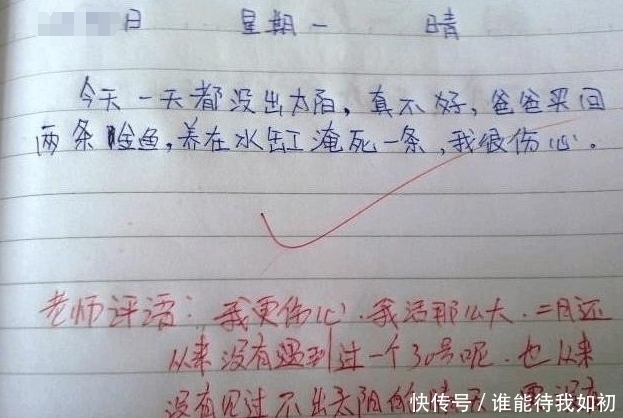 日 星期一 晴
今天一天都没出太阳,真不好,爸爸买回
两条金鱼,养在水缸淹死一条,我很伤心。
老师评语:我更伤心.我活那么大.二月还
从来没有遇到过一个30号呢.也从来
没有见过不出太阳的
快传号/谁能待我如初